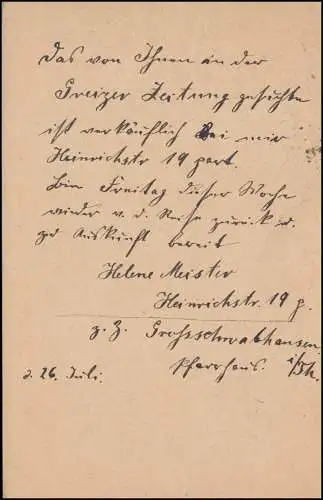 Das von Ihnen in der
Greizer Zeitung gesuchte
ist verkäuflich bei mir
Heinrichstr 19 part.
Bin Freitag dieser Woche
wieder v. d. Reise zurück u.
zu Auskunft bereit
Helene Meister
Heinrichstr. 19 p.
z. Z. Grossschwabhausen
Pfarrhaus. i/Th.
d. 26. Juli.